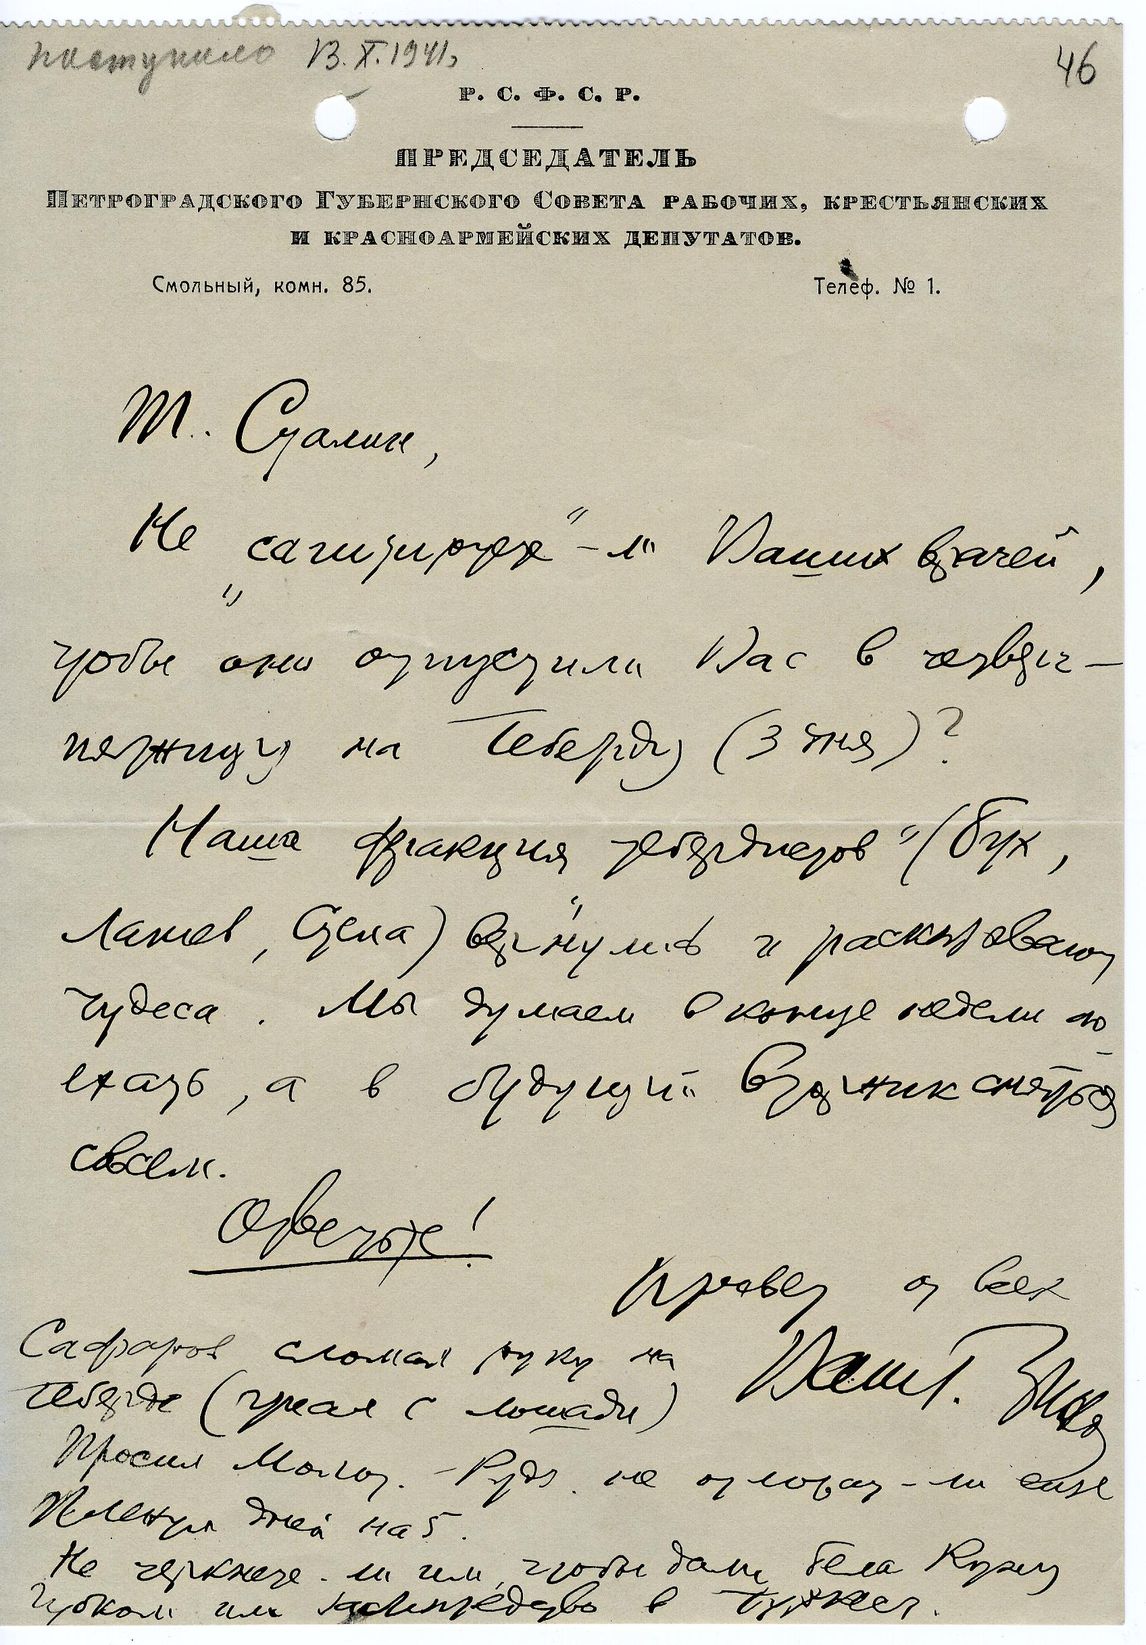 поступило 13.X.1941.
46
Р. С. Ф. С. Р.
ПРЕДСЕДАТЕЛЬ
ПЕТРОГРАДСКОГО ГУБЕРНСКОГО СОВЕТА РАБОЧИХ, КРЕСТЬЯНСКИХ
И КРАСНОАРМЕЙСКИХ ДЕПУТАТОВ.
Смольный, комн. 85.
Телеф. № 1.
Т. Сталин,
Не „сагитируете“-ли Ваших врачей,
чтобы они отпустили Вас в четверг–
пятницу на Теберду (3 дня)?
Наша фракция „тебердистов“ (Бух,
Лашев, ) вернулись и рассказывают
чудеса. Мы думаем в конце недели по
ехать, а в будущий вторник сняться
совсем.
Ответьте!
Привет от всех
Ваш Г. Зинов
Сафаров сломал руку на
Теберде (упал с лошади)
Просил Молот. – Рудз. не отложат-ли еще
Пленум дней на 5.
Не черкнете-ли им, чтобы дали Бела Куну
Губком или в Туркест.